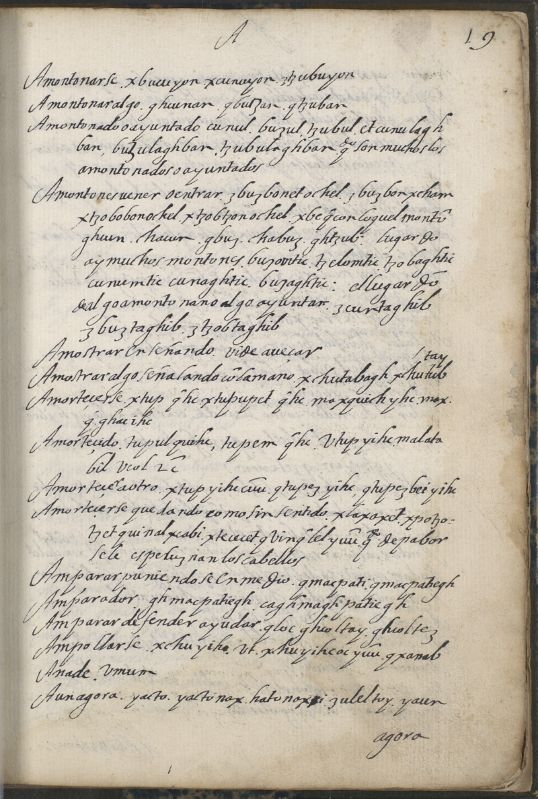 A 19
Amontonarse. xbucuyon xcunuyon. ztzubuyon
Amontonar algo. ghunar qbutzar. qtzubar
Amontonado o ayuntado cunul. buzul. tzubul. et cunulagh
bar, butzulaghbar. tzubulaghbar. qdo son muchos los
amontonados o ayuntados
Amontones uenir o entrar. zbuzbonet ochel. zbuzbon xcham
xtzobobon ochel. xtzobtzon ochel. el montō
ghuun. hauur. gbuz. habuz. ghtzub. lugar dō
ay muchos montones buzoutic. tzelomtic tzobaghtic
cunemtic cunaghtic. buzaghtic: el lugar dō
de algo amontonan o algo ayuntar. zcuntaghib
zbuztaghib. ztzobtaghib
Amostrar enseñando. vide auezar
Amostrar algo señalando cō la mano. xchutabagh xchuhib / tay
Amortecerse xtup qhe xtupupet qhe max quich yhc. max.
q ghac ihc
Amortecido. tupul quihc, tupem qhc. vtup yihc malata
bil vcol ic
Amortecer a otro. xtup yihc cuu qtupez yihc. qtupezbei yihc
Amortecerse quedando como sin sentido. xpotzo-
tzet quinal xcabi. xtecicet de pabor
se le espeluznan los cabellos
Amparar puniendose en medio. qmacpati. qmacpatiegh
Amparador. ghmacpatiegh. caghmaghpatiegh
Amparar defender ayudar. qloc ghcoltay. ghcoltez
Ampollarse. xchuyiho. vt. xhuyihcoc yuu, qxanab
Anade. vmum
Aun agora. yacto. yacto nax. hato nax zulel toy. yaun
agora